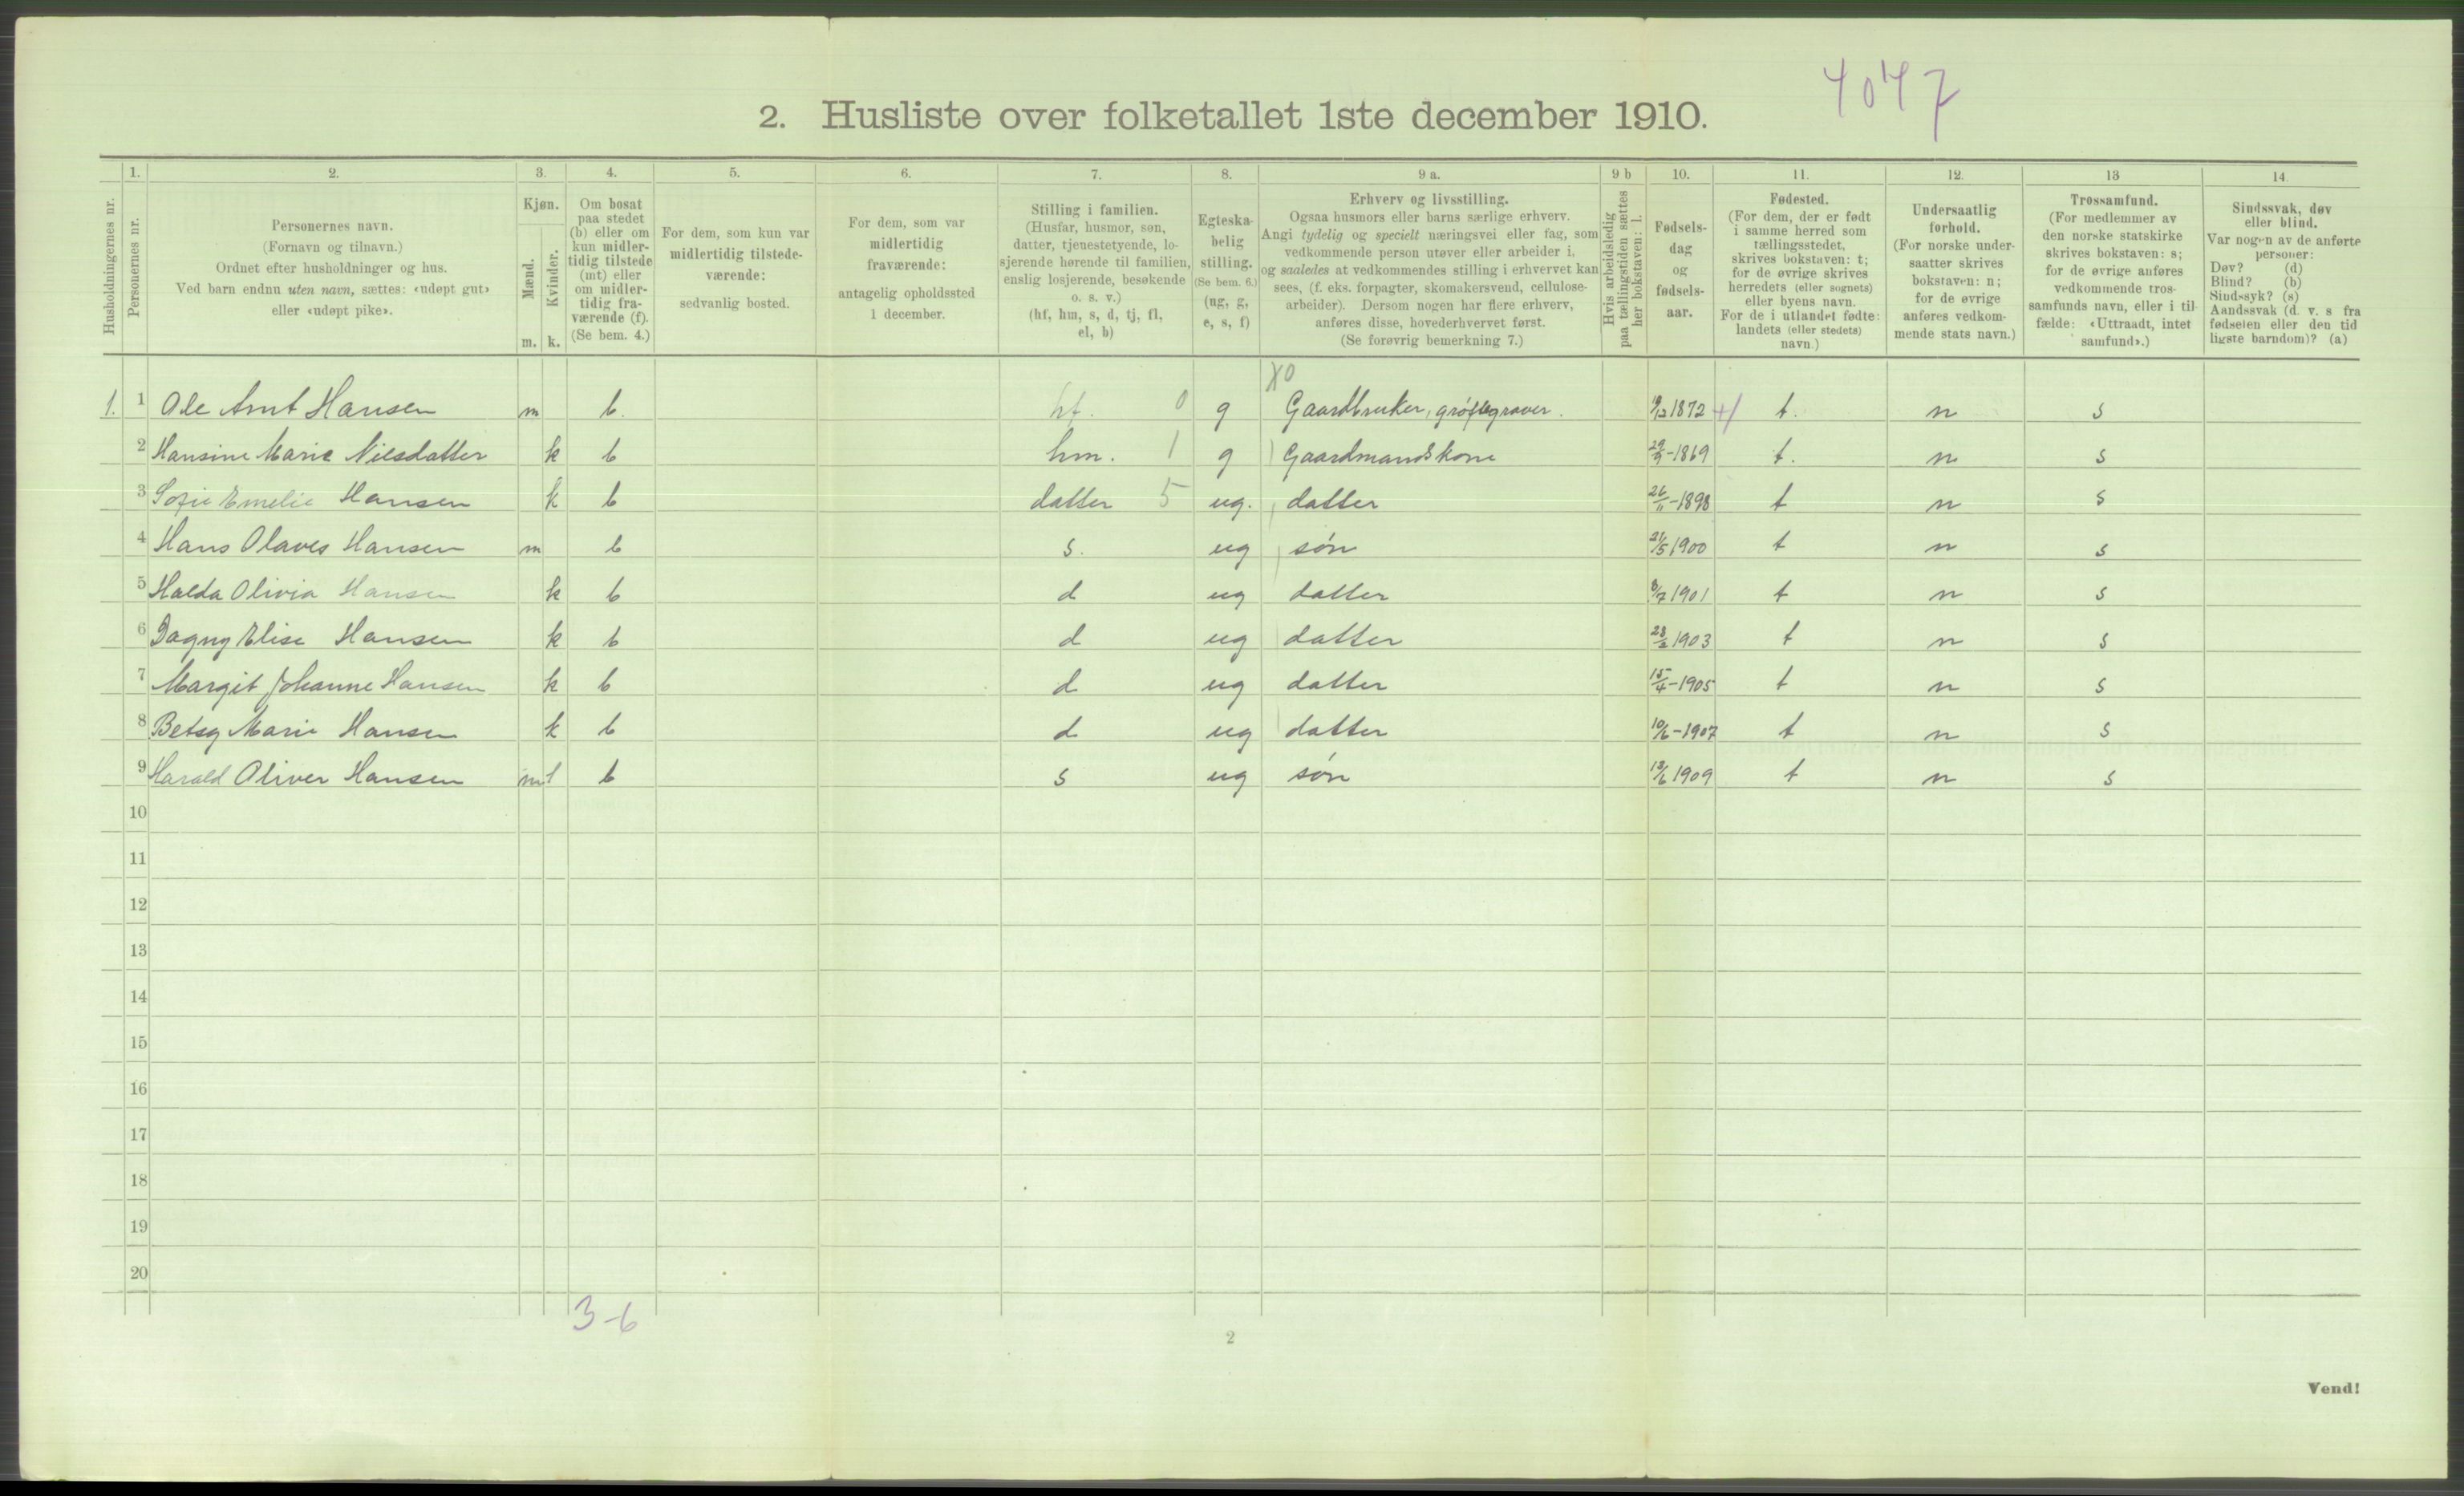 4047
2. Husliste over folketallet 1ste december 1910.
Husholdningernes nr.
1.
Personernes nr.
2.
Personernes navn.
(Fornavn og tilnavn.)
Ordnet efter husholdninger og hus.
Ved barn endnu uten navn, sættes: «udøpt gut»
eller «udøpt pike».
3.
Kjøn.
Mænd.
Kvinder.
m. k.
4.
Om bosat
paa stedet
(b) eller om
kun midler-
tidig tilstede
(mt) eller
om midler-
tidig fra-
værende (f).
(Se bem. 4.)
5.
For dem, som kun var
midlertidig tilstede-
værende:
sedvanlig bosted.
6.
For dem, som var
midlertidig
fraværende:
antagelig opholdssted
1 december.
7.
Stilling i familien.
(Husfar, husmor, søn,
datter, tjenestetyende, lo-
sjerende hørende til familien,
enslig losjerende, besøkende
o. s. v.)
(hf, hm, s, d, tj, fl,
el, b)
8.
Egteska-
belig
stilling.
(Se bem. 6.)
(ug, g,
e, s, f)
9 a.
Erhverv og livsstilling.
Ogsaa husmors eller barns særlige erhverv.
Angi tydelig og specielt næringsvei eller fag, som
vedkommende person utøver eller arbeider i,
og saaledes at vedkommendes stilling i erhvervet kan
sees, (f. eks. forpagter, skomakersvend, cellulose-
arbeider). Dersom nogen har flere erhverv,
anføres disse, hovederhvervet først.
(Se forøvrig bemerkning 7.)
9 b
Hvis arbeidsledig
paa tællingstiden sættes
her bokstaven: l.
10.
Fødsels-
dag
og
fødsels-
aar.
11.
Fødested.
(For dem, der er født
i samme herred som
tællingsstedet,
skrives bokstaven: t;
for de øvrige skrives
herredets (eller sognets)
eller byens navn.
For de i utlandet fødte:
landets (eller stedets)
navn.)
12.
Undersaatlig
forhold.
(For norske under-
saatter skrives
bokstaven: n;
for de øvrige
anføres vedkom-
mende stats navn.)
13
Trossamfund.
(For medlemmer av
den norske statskirke
skrives bokstaven: s;
for de øvrige anføres
vedkommende tros-
samfunds navn, eller i til-
fælde: «Uttraadt, intet
samfund».)
14.
Sindssvak, døv
eller blind.
Var nogen av de anførte
personer:
Døv? (d)
Blind? (b)
Sindssyk? (s)
Aandssvak (d. v. s fra
fødselen eller den tid
ligste barndom)? (a)
X0
1. 1 Ole Arnt Hansen m b. hf. 0 g Gaardbruker, grøftegraver. 1872 + t. n s
2 Hansine Marie Nilsdatter k b hm. 1 g Gaardmandskone 29/9-1869 t. n s
3 Sofie Emelie Hansen k b datter 5 ug. datter 26/11-1898 t n s
4 Hans Olaves Hansen m b s. ug søn 21/5 1900 t n s
5 Halda Olivia Hansen k b d ug datter 8/7 1901 t n s
6 Dagny Elise Hansen k b d ug datter 28/2 1903 t n s
7 Margit Johanne Hansen k b d ug datter 15/4-1905 t n s
8 Betsy Marie Hansen k b d ug datter 10/6-1907 t n s
9 Harald Oliver Hansen m b s ug søn 13/6 1909 t n s
10
11
12
13
14
15
16
17
18
19
20
3-6
2
Vend!